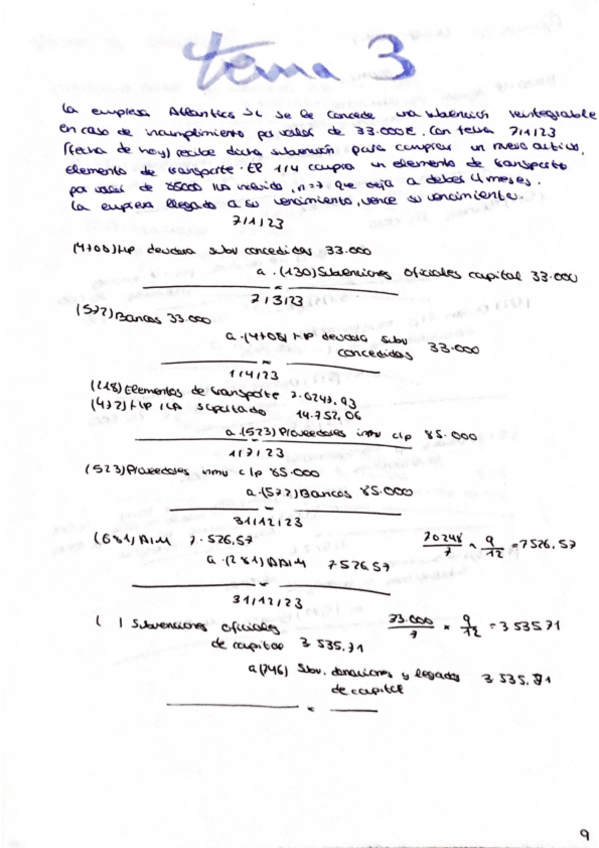 tema 3
La empresa Atlantics SL se le concede una subvención reintegrable
en caso de incumplimiento por valor de 33.000€. Con fecha 7/1/23
(fecha de hoy) recibe dicha subvención para comprar un nuevo activo,
elemento de transporte. El 1/4 compra un elemento de transporte
por valor de 85000 IVA incluido, n=7 que deja a deber 4 meses.
La empresa llegado a su vencimiento, vence su vencimiento.
7/1/23
(4708) HP deudora subv concedidas 33.000
a (130) Subvenciones oficiales capital 33.000
7/3/23
(572) Bancos 33.000
a (4708) HP deudora subv
concedidas 33.000
1/4/23
(218) Elementos de transporte 7.0247,93
(472) HP IVA soportado 14.752,06
a (523) Proveedores inmv c/p 85.000
1/7/23
(523) Proveedores inmv c/p 85.000
a (572) Bancos 85.000
31/12/23
(681) AIM 7.526,57 70248/7 × 9/12 = 7526,57
a (281) AAIM 7526,57
31/12/23
( ) Subvenciones oficiales 33.000/7 × 9/12 = 353571
de capital 3 535,71
a (746) Subv. donaciones y legados 3 535,71
de capital
9